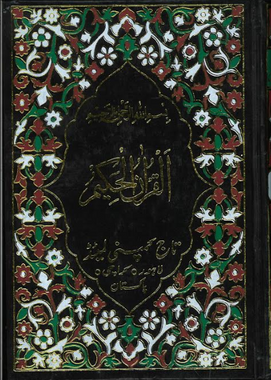 بسم الله الرحمن الرحيم
القرآن الحكيم
تاج کمپنی لمیٹڈ
لاہور ○ کراچی ○
پاکستان